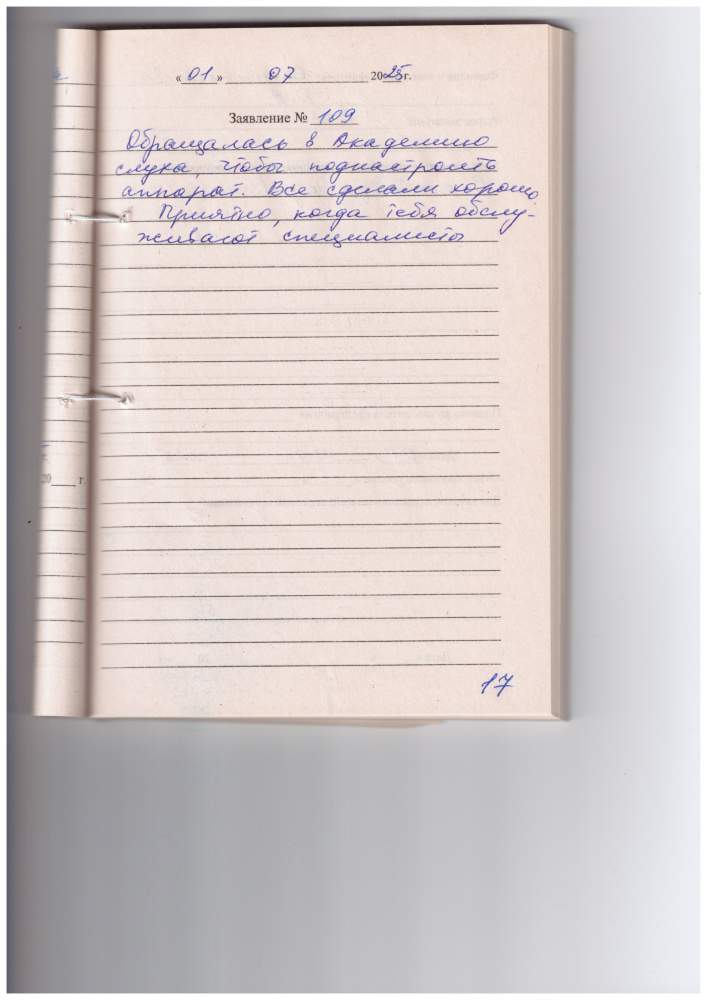 «01» 07 2025г.
Заявление № 109
Обращалась в Академию
слуха, чтобы поднастроить
аппарат. Все сделали хорошо.
Приятно, когда тебя обслу-
живают специалисты
20 г.
17